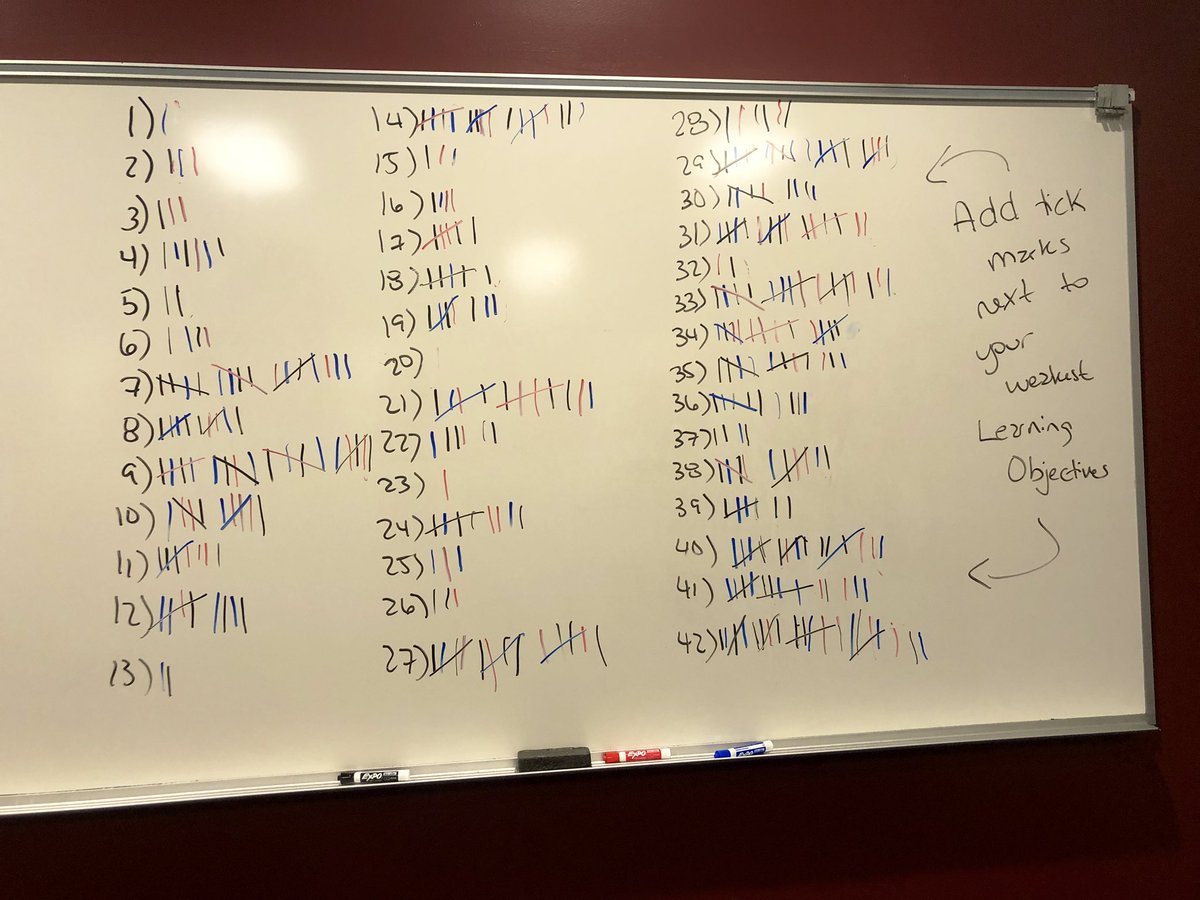 1)
2)
3)
4)
5)
6)
7)
8)
9)
10)
11)
12)
13)
14)
15)
16)
17)
18)
19)
20)
21)
22)
23)
24)
25)
26)
27)
28)
29)
30)
31)
32)
33)
34)
35)
36)
37)
38)
39)
40)
41)
42)
Add tick
marks
next to
your
weakest
Learning
Objectives
EXPO
EXPO
EXPO